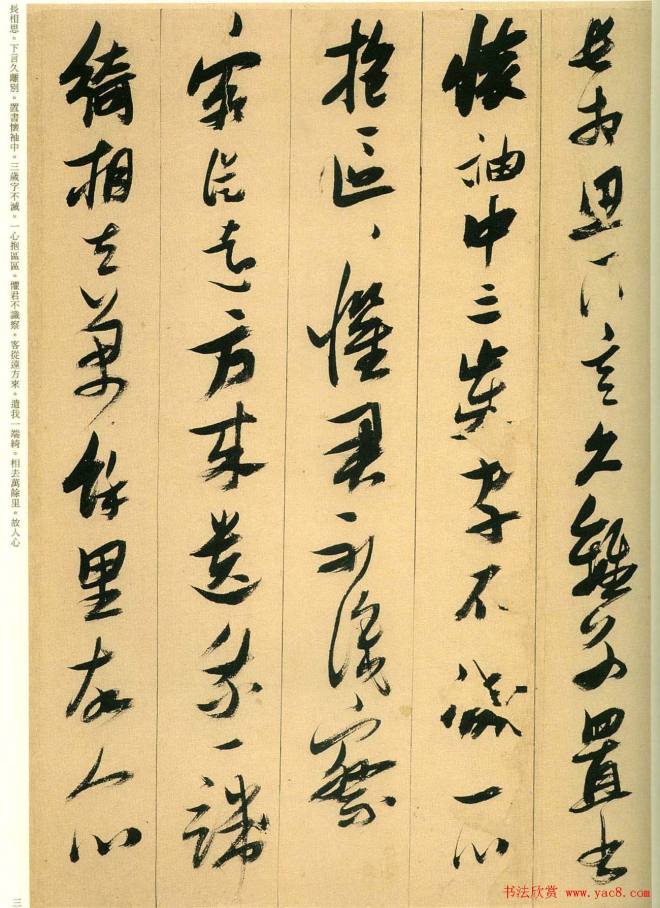 長相思下言久離別置書
懷袖中三歲字不滅一心
抱區〻懼君不識察
客從遠方來遺我一端
綺相去萬餘里故人心
長相思。下言久離別。置書懷袖中。三歲字不滅。一心抱區區。懼君不識察。客從遠方來。遺我一端綺。相去萬餘里。故人心
三
书法欣赏 www.yac8.com